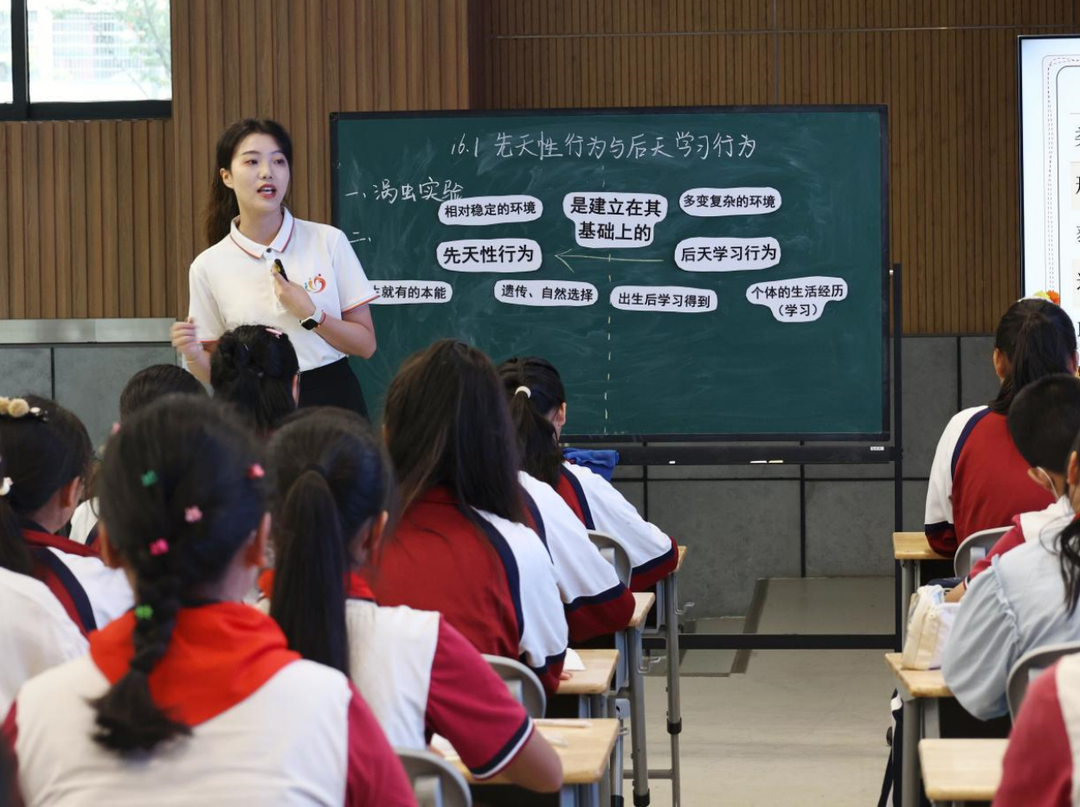 16.1 先天性行为与后天学习行为
一、涡虫实验
二、
相对稳定的环境
是建立在其
基础上的
多变复杂的环境
先天性行为
后天学习行为
生就有的本能
遗传、自然选择
出生后学习得到
个体的生活经历
（学习）